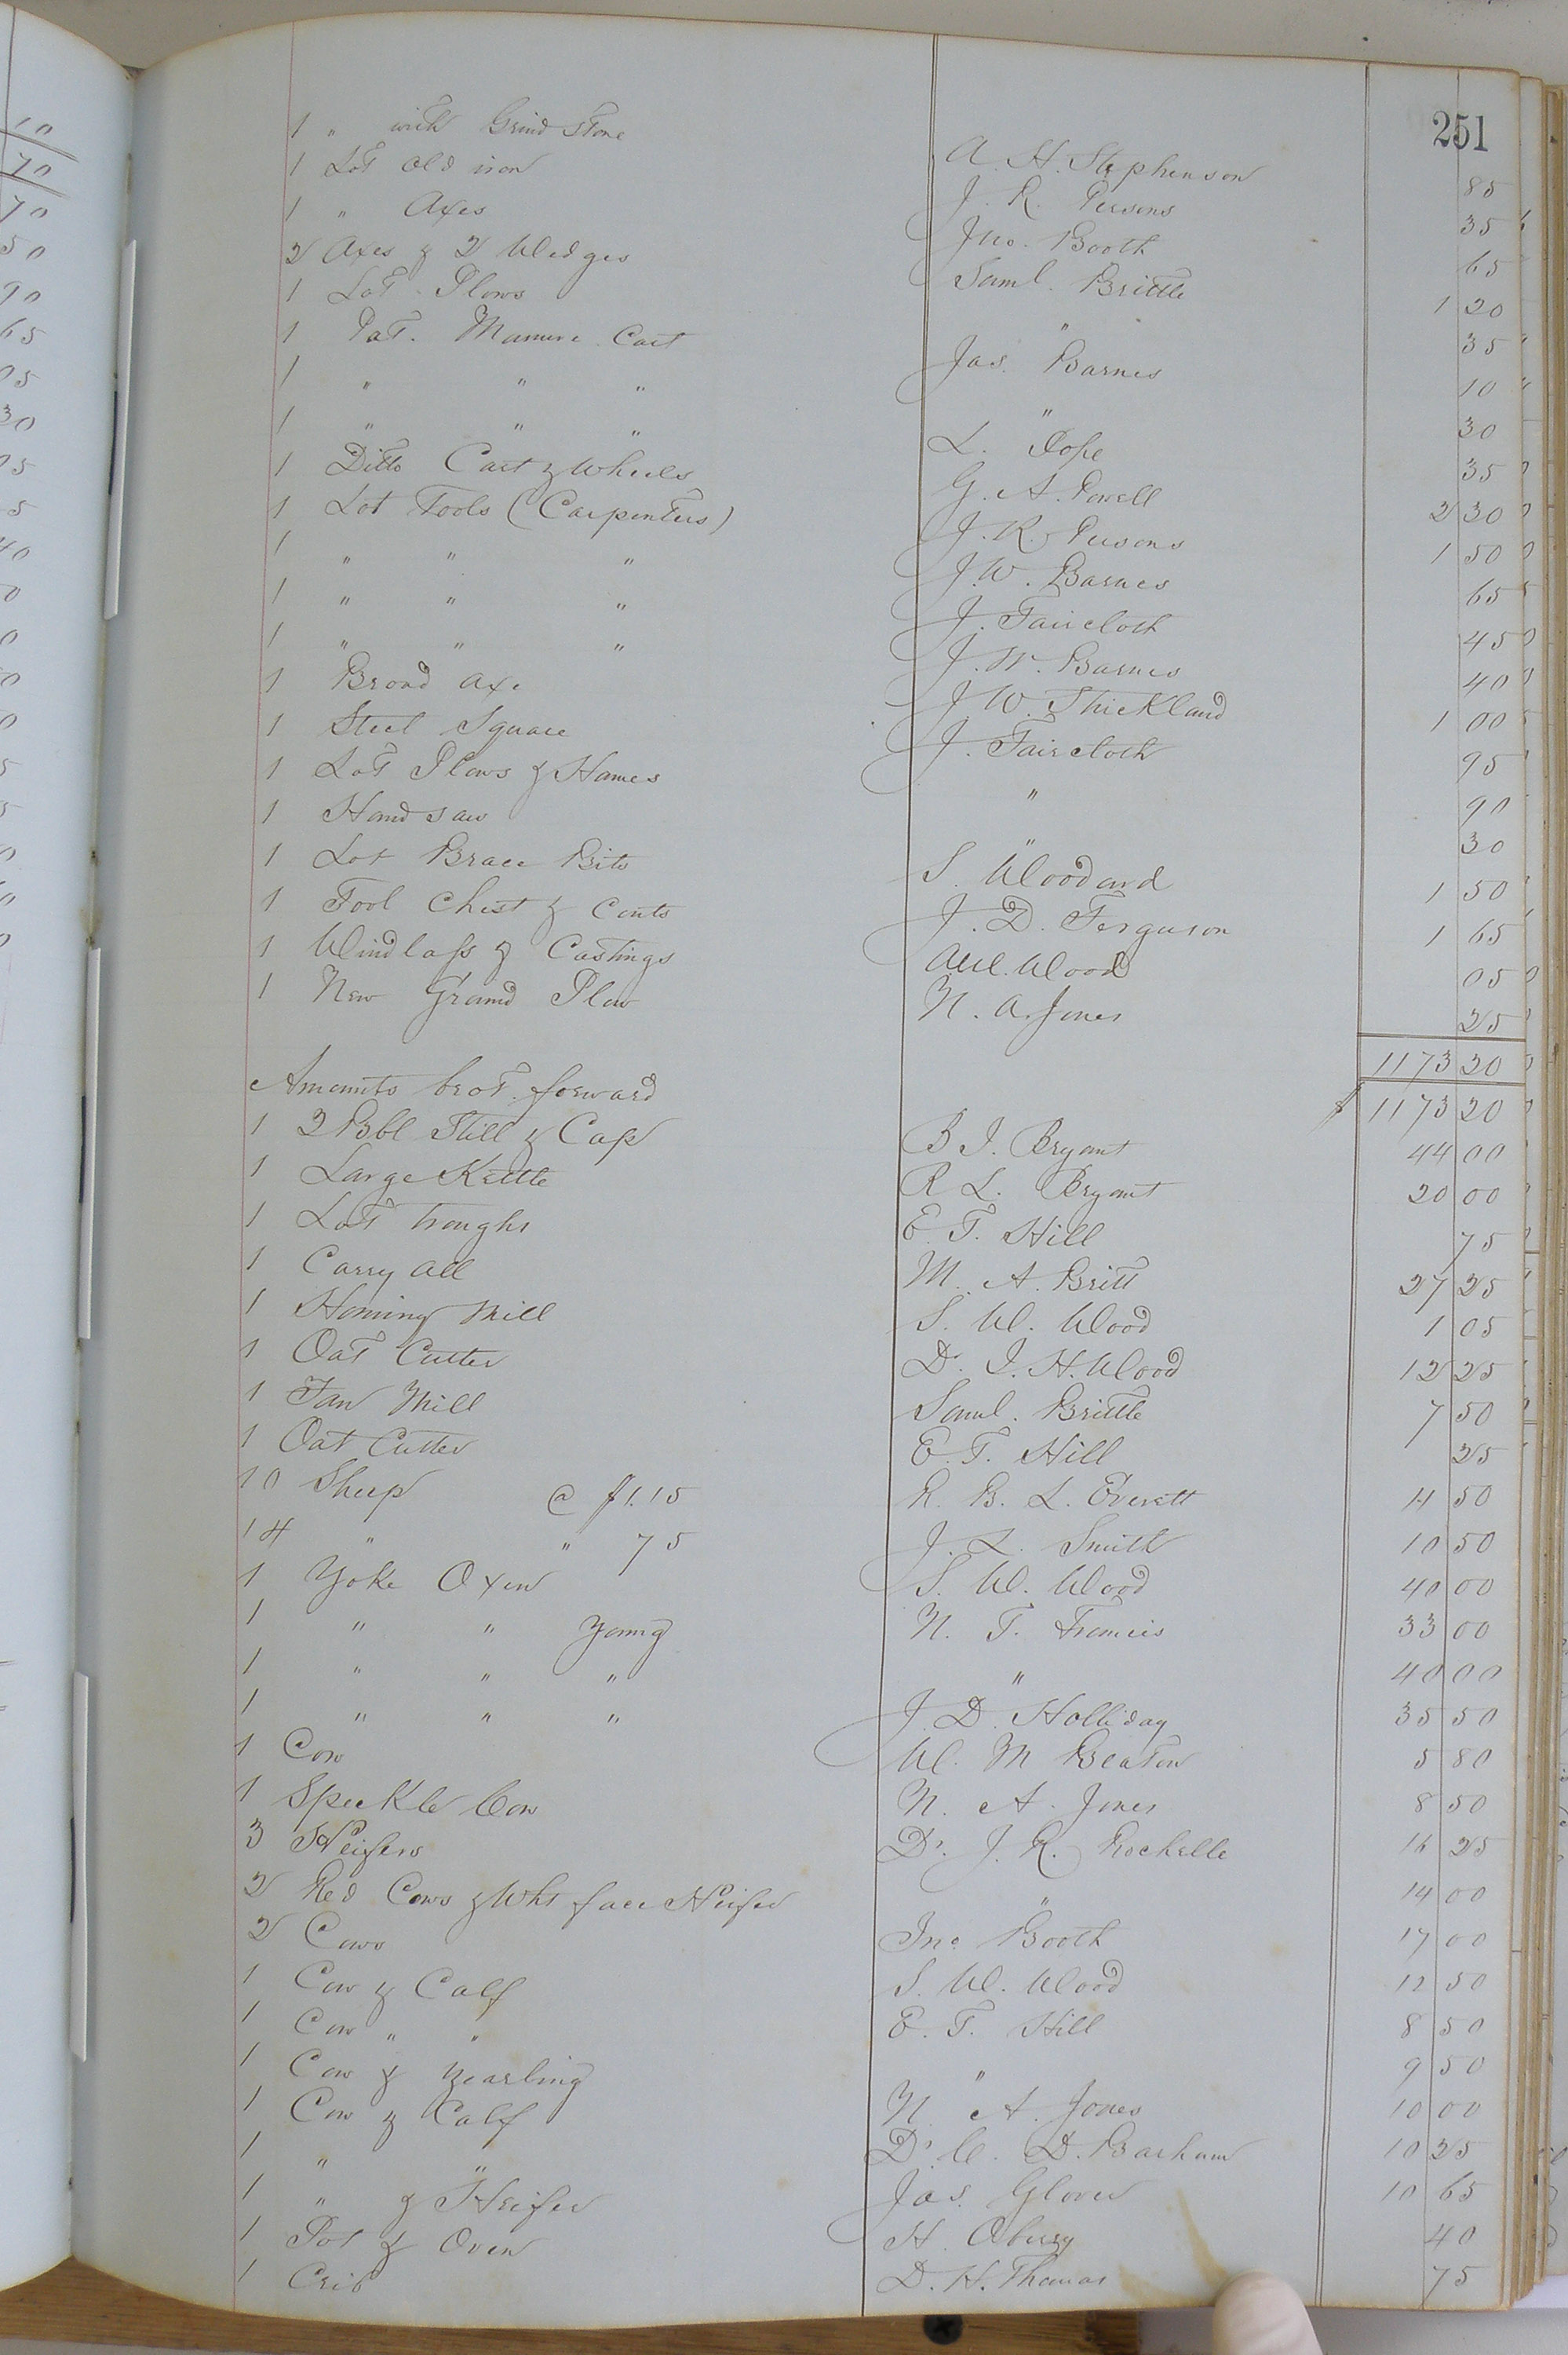 251
1 " with Grind Stone A. H. Stephenson 85
1 Lot old iron J. R. Persons 35
1 " Axes Jno. Booth 65
2 Axes & 2 Wedges Saml. Brittle 1 20
1 Lot Plows " 35
1 Pat. Manure Cart Jas. Barnes 10
1 " " " " 30
1 " " " L. Pope 35
1 Ditto Cart & Wheels G. A. Powell 2 30
1 Lot Tools (Carpenters) J. R. Persons 1 50
1 " " " J. W. Barnes 65
1 " " " J. Faircloth 45
1 " " " J. W. Barnes 40
1 Broad axe J W. Strickland 1 00
1 Steel Square J. Faircloth 95
1 Lot Plows & Hames " 90
1 Handsaw " 30
1 Lot Brace Bits S. Woodard 1 50
1 Tool Chest & Conts J. D. Ferguson 1 65
1 Windlass & Castings A W. Wood 05
1 New Ground Plow N. A. Jones 25
1173 20
Amounts brot. forward $ 1173 20
1 2 Bbl Still & Cap B I. Bryant 44 00
1 Large Kettle R L. Bryant 20 00
1 Lot troughs E. T. Hill 75
1 Carry all M. A. Britt 27 25
1 Hominy Mill S. W. Wood 1 05
1 Oat Cutter Dr. I. H. Wood 12 25
1 Fan Mill Saml. Brittle 7 50
1 Oat Cutter E. T. Hill 25
10 Sheep @ $1.15 R. B. L. Everett 11 50
14 " " 75 J. L. Smith 10 50
1 Yoke Oxen S. W. Wood 40 00
1 " " Young N. T. Francis 33 00
1 " " " " 40 00
1 " " " J. D. Holliday 35 50
1 Cow W. M Beaton 5 80
1 Speckle Cow N. A. Jones 8 50
3 Heifers Dr. J. R. Rochelle 16 25
2 Red Cows & Wht face Heifer " 14 00
2 Cows Jno Booth 17 00
1 Cow & Calf S. W. Wood 12 50
1 Cow " " E. T. Hill 8 50
1 Cow & yearling " 9 50
1 Cow & Calf N. A. Jones 10 00
1 " " Dr. C. D. Barham 10 25
1 " & Heifer Jas. Glover 10 65
1 Pot & Oven H. 40
1 Crib D. H. Thomas 75